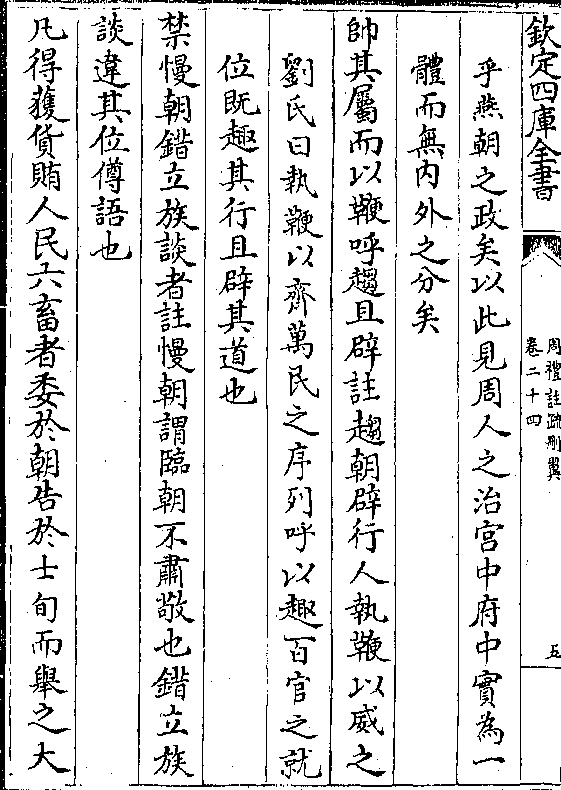 欽定四庫全書
周禮註疏刪翼
卷二十四
五
乎燕朝之政矣以此見周人之治宫中府中實為一
體而無内外之分矣
帥其屬而以鞭呼趨且辟註趨朝辟行人執鞭以威之
劉氏曰執鞭以齊萬民之序列呼以趣百官之就
位既趣其行且辟其道也
禁慢朝錯立族談者註慢朝謂臨朝不肅敬也錯立族
談違其位僔語也
凡得獲貨賄人民六畜者委於朝告於士旬而舉之大